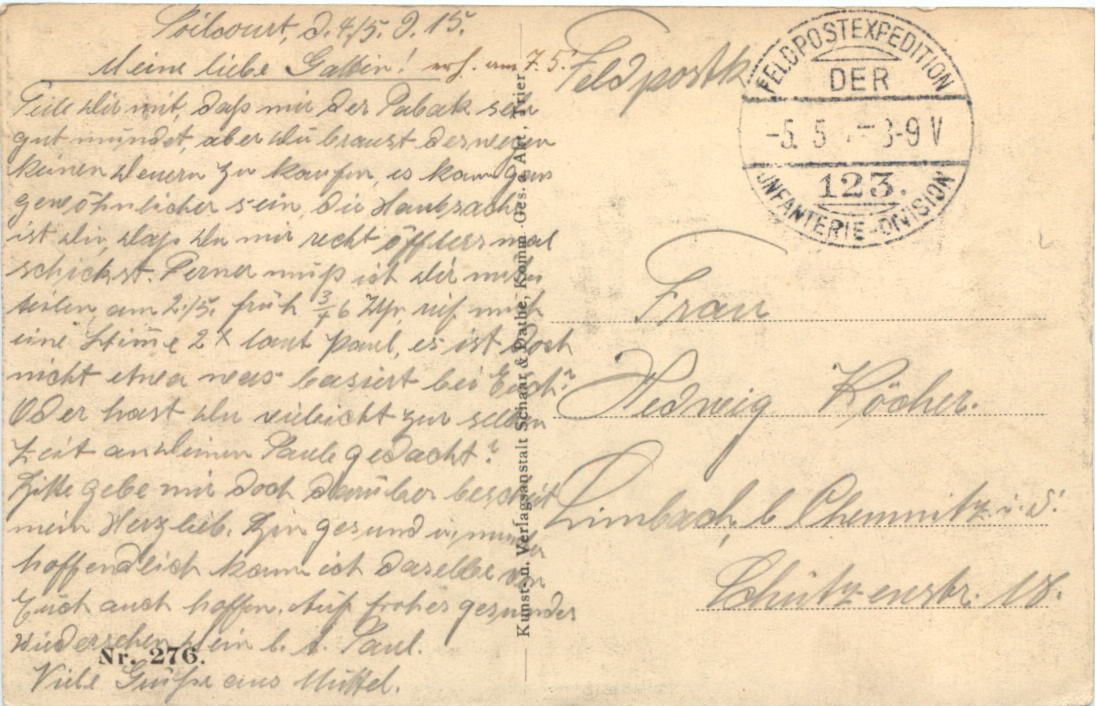 Loilcourt, d. 4/5. 15.
Meine liebe Gattin! erh. am 7.5.
Teile Dir mit, daß mir der Tabak sehr
gut mundet, aber Du braust deswegen
keinen deuern zu kaufen, es kann ganz
gewöhnlicher sein, die Haubsache
ist die, daß Du mir recht öffters mal
schickst. Ferner muß ich Dir mitt-
teilen am 2./5. früh 3/4 6 Uhr rief mich
eine Stimme 2 x laut Paul, es ist doch
nicht etwa was basiert bei Euch?
Oder hast Du vieleicht zur selben
Zeit an Deinen Paule gedacht?
Bitte gebe mir doch darüber bescheit
mein Herzlieb. Bin gesund u. munder
hoffendlich kann ich daselbe von
Euch auch hoffen. Auf frohes gesundes
Wiedersehen Dein l. Paul.
Viele Grüße aus
Nr. 276.
Kunst- u. Verlagsanstalt Schaar & Dathe, Komm.-Ges. a. Akt., Trier
Feldpostk
FELDPOSTEXPEDITION
DER
-5. 5 8-9 V
123.
INFANTERIE-DIVISION
Frau
Hedwig Köcher.
Limbach, b Chemnitz i. S.
Schützenstr. 18.